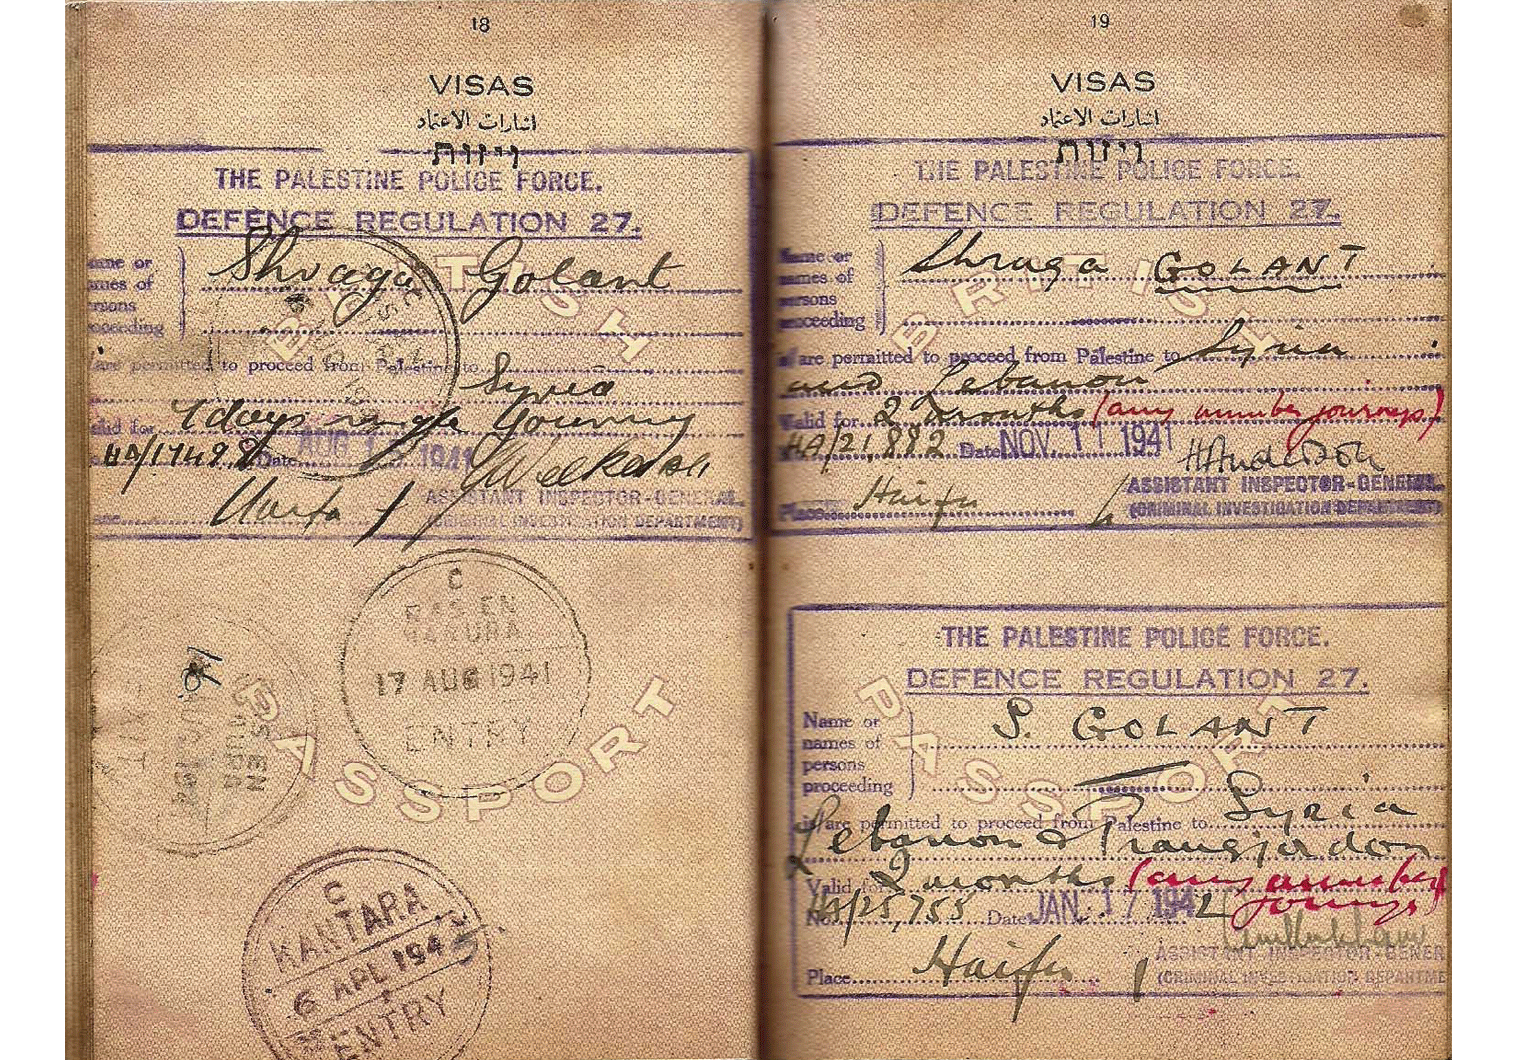 18
VISAS
اشارات الاعتماد
ויזות
THE PALESTINE POLICE FORCE.
DEFENCE REGULATION 27.
Name or names of persons proceeding
Shraga Golant
is/are permitted to proceed from Palestine to Syria
Valid for 7 days single journey
HA/17498 Date AUG 1941
Haifa
ASSISTANT INSPECTOR-GENERAL.
(CRIMINAL INVESTIGATION DEPARTMENT)
BRITISH
PASSPORT
C
RAS EN
NAKURA
17 AUG 1941
ENTRY
C
KANTARA
6 APL 194
ENTRY
19
VISAS
اشارات الاعتماد
ויזות
THE PALESTINE POLICE FORCE.
DEFENCE REGULATION 27.
Name or names of persons proceeding
Shraga GOLANT
is/are permitted to proceed from Palestine to Syria
and Lebanon
Valid for 2 months (any number journeys)
HA/21,892 Date NOV. 11 1941
Place Haifa
ASSISTANT INSPECTOR-GENERAL.
(CRIMINAL INVESTIGATION DEPARTMENT)
BRITISH
PASSPORT
THE PALESTINE POLICE FORCE.
DEFENCE REGULATION 27.
Name or names of persons proceeding
S. GOLANT
is/are permitted to proceed from Palestine to Syria
Lebanon & Transjordan
Valid for 2 months (any number
No. HA/25,755 Date JAN. 17 1942 journeys)
ASSISTANT INSPECTOR-GENER
Place Haifa
(CRIMINAL INVESTIGATION DEPARTME